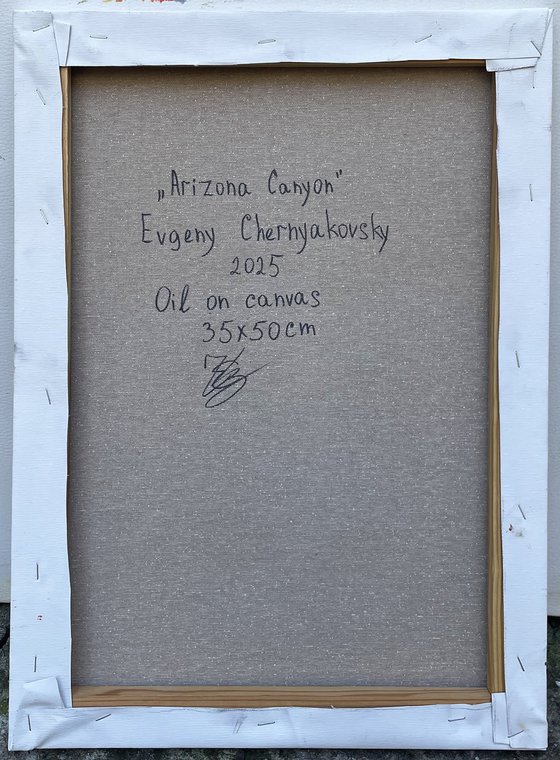 „Arizona Canyon"
Evgeny Chernyakovsky
2025
Oil on canvas
35x50cm